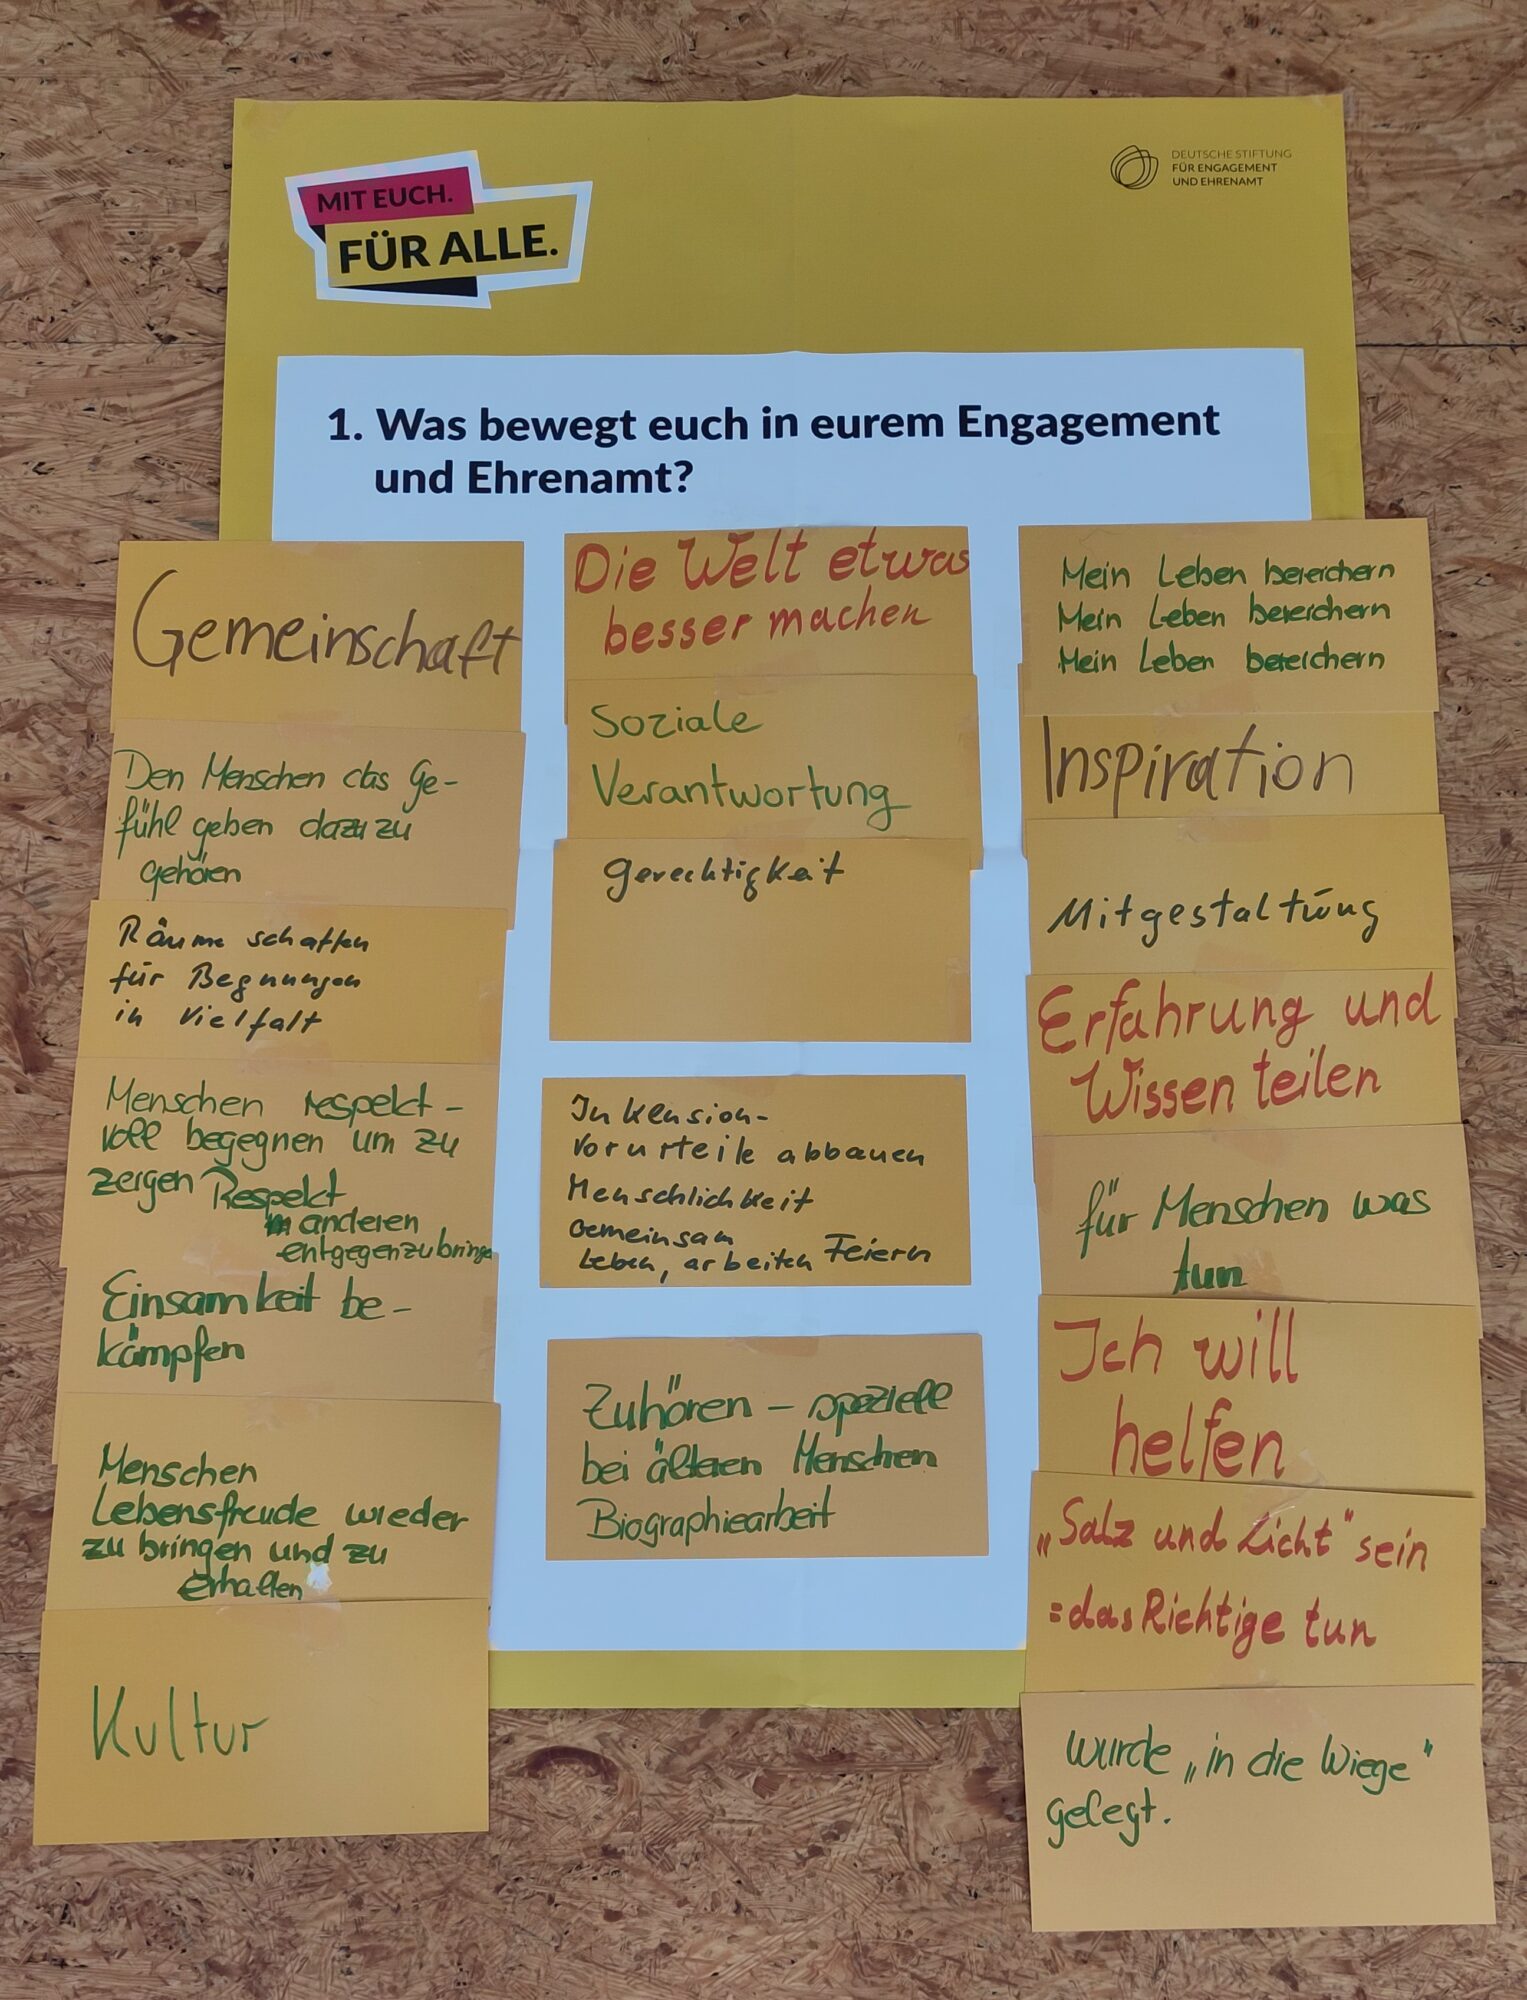 MIT EUCH.
FÜR ALLE.
DEUTSCHE STIFTUNG
FÜR ENGAGEMENT
UND EHRENAMT
1. Was bewegt euch in eurem Engagement
und Ehrenamt?
Gemeinschaft
Den Menschen das Ge-
fühl geben dazu zu
gehören
Räume schaffen
für Begnungen
in Vielfalt
Menschen respekt-
voll begegnen um zu
zeigen Respekt
anderen
entgegenzubringe
Einsamkeit be-
kämpfen
Menschen
Lebensfreude wieder
zu bringen und zu
erhalten
Kultur
Die Welt etwas
besser machen
Soziale
Verantwortung
Gerechtigkeit
Inklusion-
Vorurteile abbauen
Menschlichkeit
Gemeinsam
Leben, arbeiten Feiern
Zuhören - speziell
bei älteren Menschen
Biographiearbeit
Mein Leben bereichern
Mein Leben bereichern
Mein Leben bereichern
Inspiration
Mitgestaltung
Erfahrung und
Wissen teilen
für Menschen was
tun
Ich will
helfen
„Salz und Licht" sein
=das Richtige tun
wurde „in die Wiege"
gelegt.